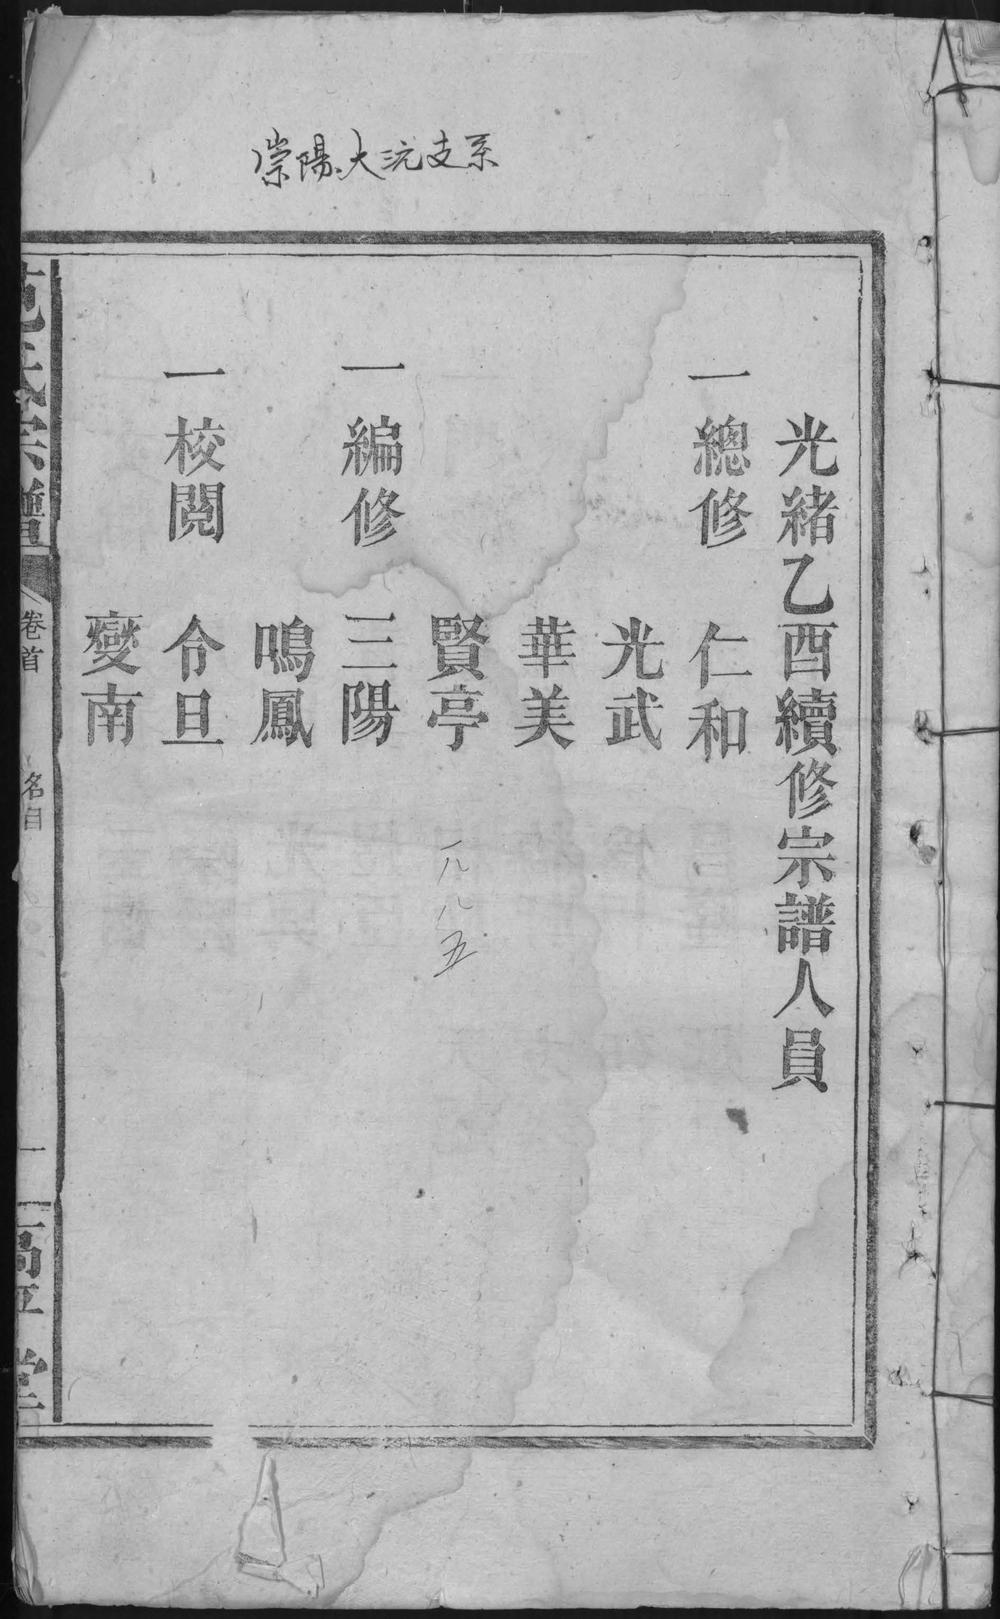 崇陽大沅支系
光緒乙酉續修宗譜人員
一總修 仁和
光武
華美
賢亭
一八八五
一編修 三陽
鳴鳳
一校閱 令旦
燮南
范氏宗譜 卷首 名目 一 高平堂